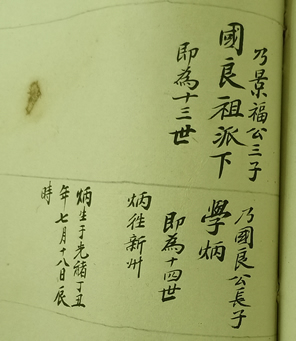 乃景福公三子
國良祖派下
即為十三世
乃國良公長子
學炳
即為十四世
炳徃新州
炳生于光緒丁丑
年七月十八日辰
時